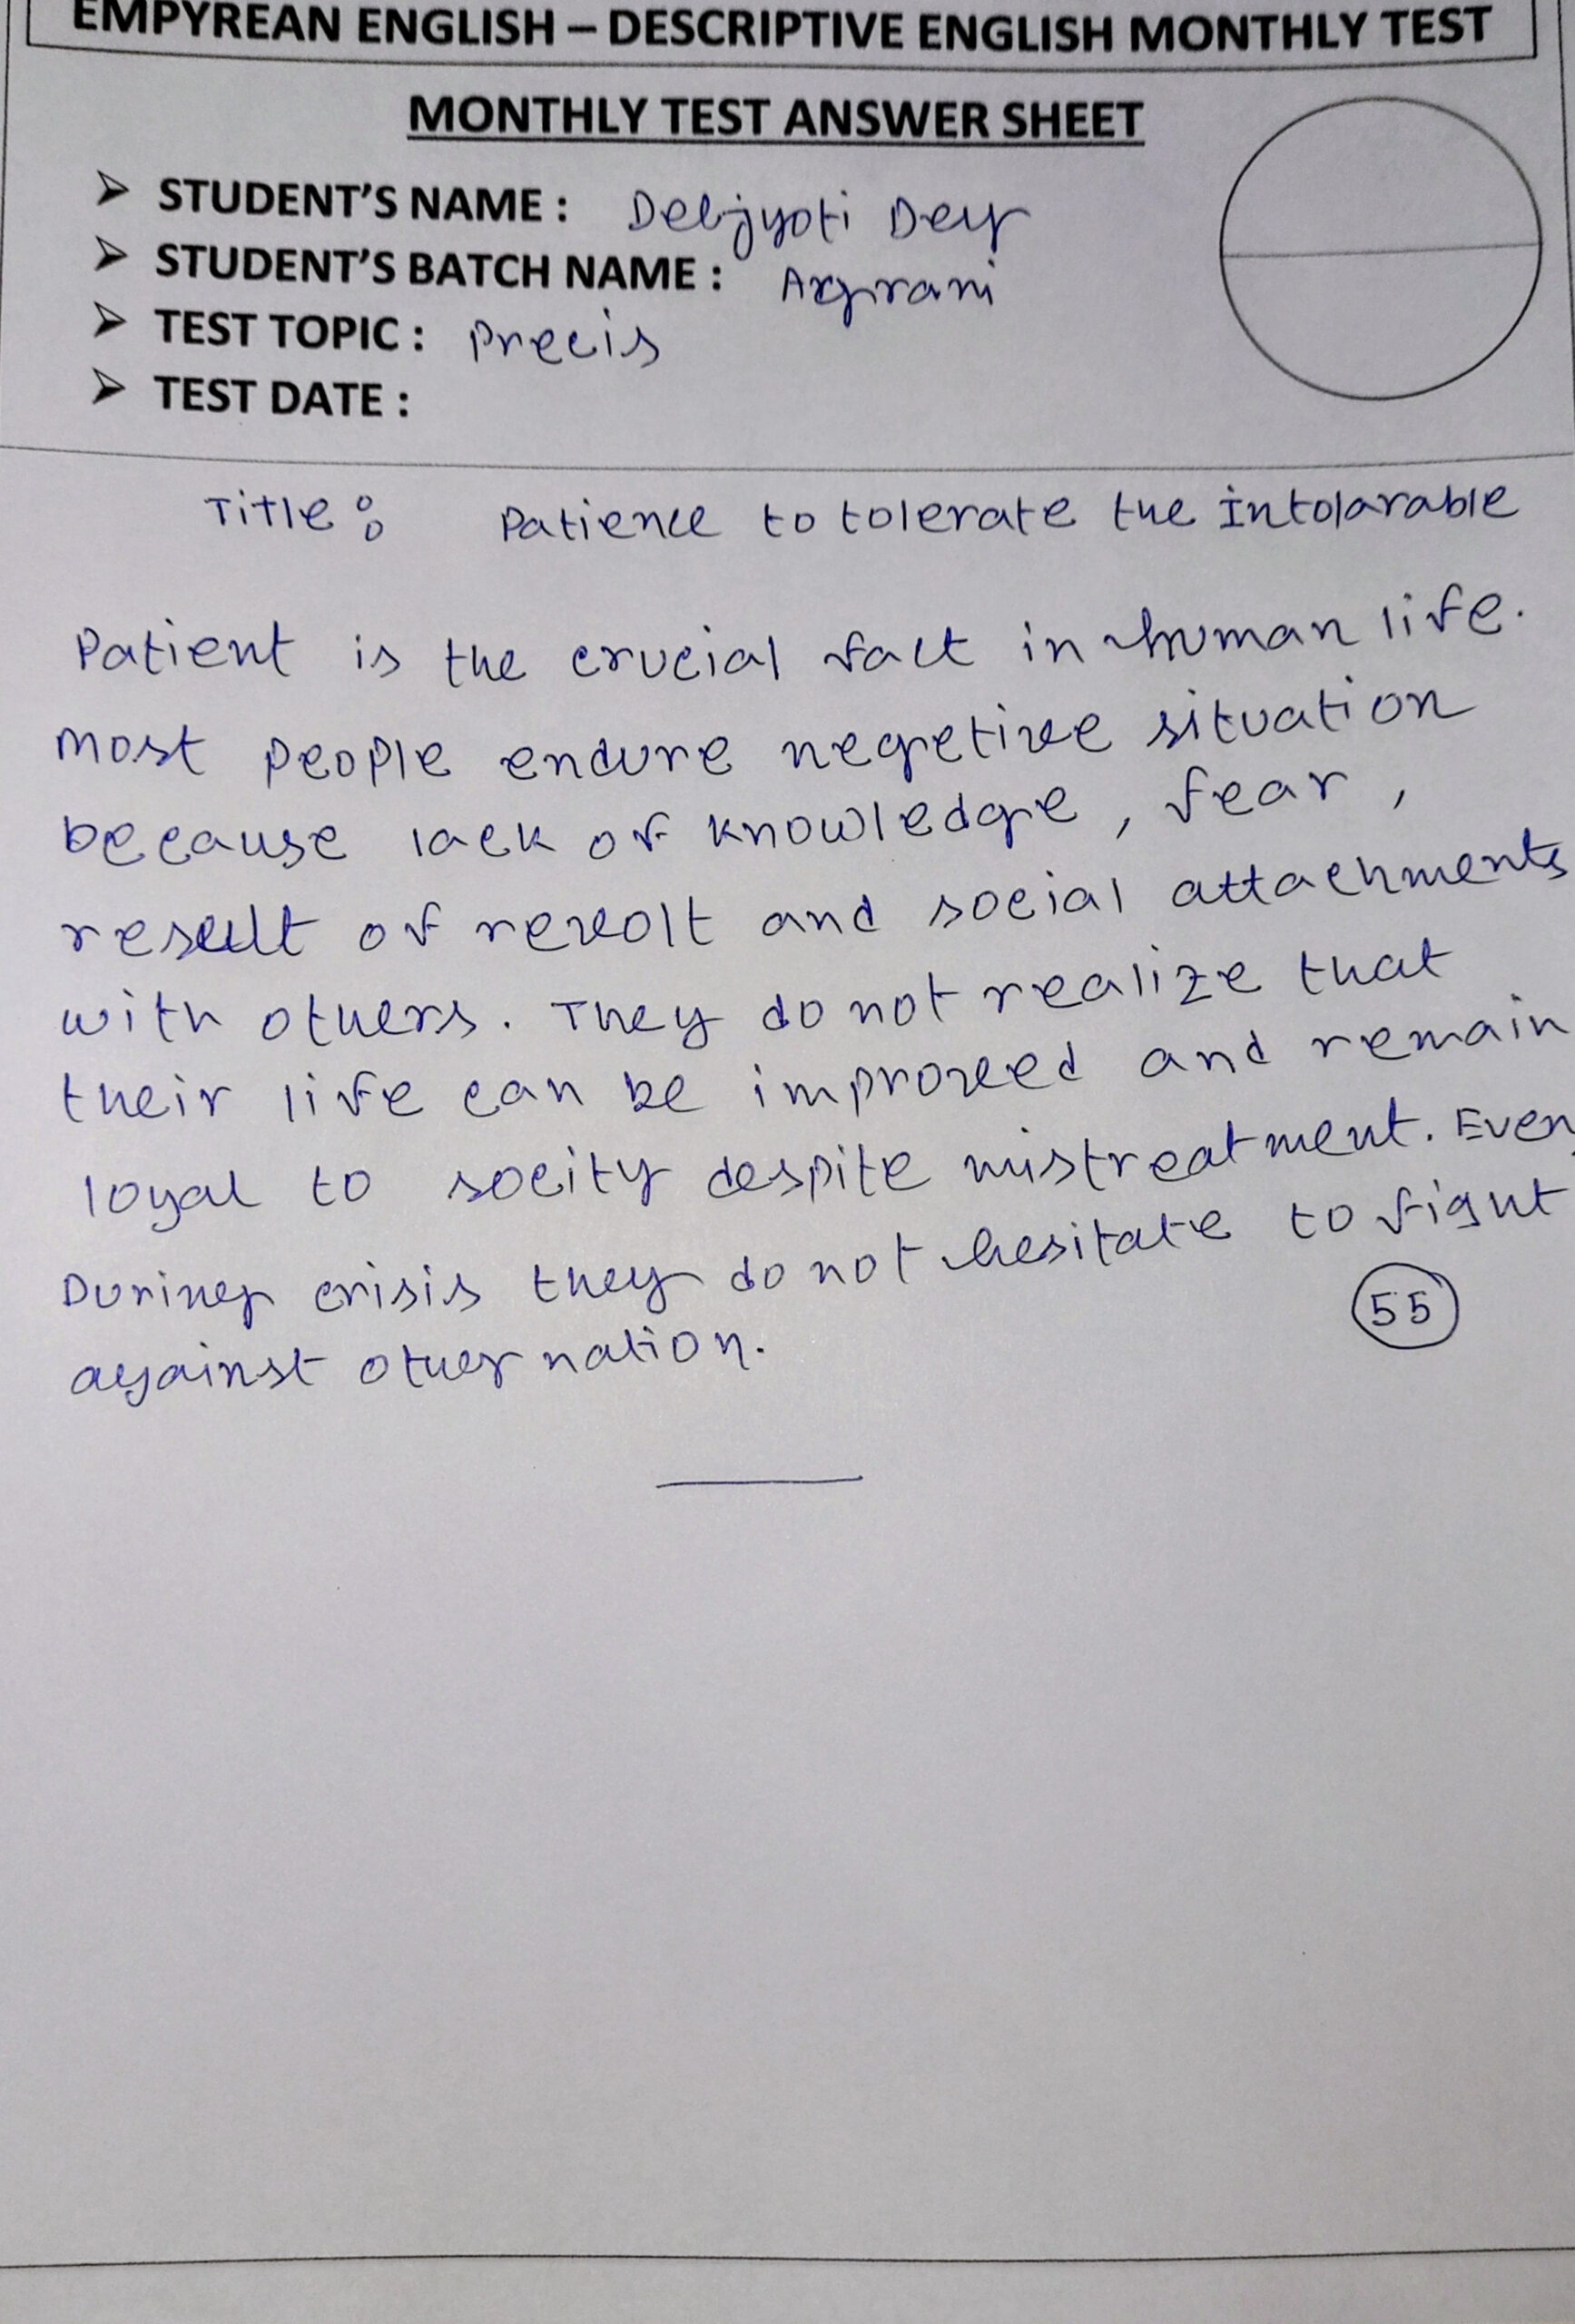 EMPYREAN ENGLISH – DESCRIPTIVE ENGLISH MONTHLY TEST
MONTHLY TEST ANSWER SHEET
➢ STUDENT'S NAME : Debjyoti Dey
➢ STUDENT'S BATCH NAME :
➢ TEST TOPIC : Precis
➢ TEST DATE :
Title : Patience to tolerate the Intolarable
Patient is the crucial fact in human life.
Most people endure negetive situation
because lack of knowledge, fear,
result of revolt and social attachments
with others. They do not realize that
their life can be improved and remain
loyal to socity despite mistreatment. Even
During crisis they do not hesitate to fight
against other nation.
55